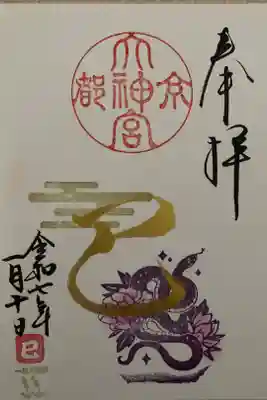 奉拝
京都
大神宮
巳
令和七年
一月十日
巳